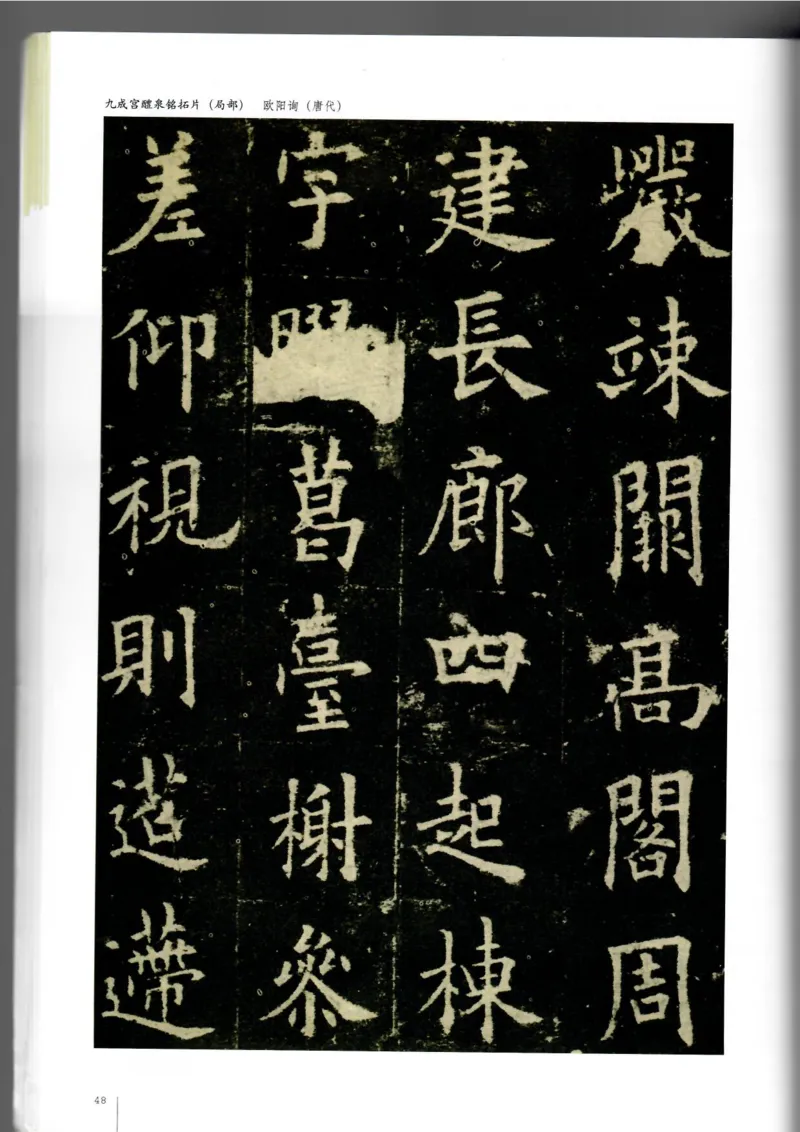 九成宫醴泉铭拓片（局部） 欧阳询（唐代）
巖竦闕高閣周
建長廊四起棟
字膠葛臺榭參
差仰視則迢遰
48